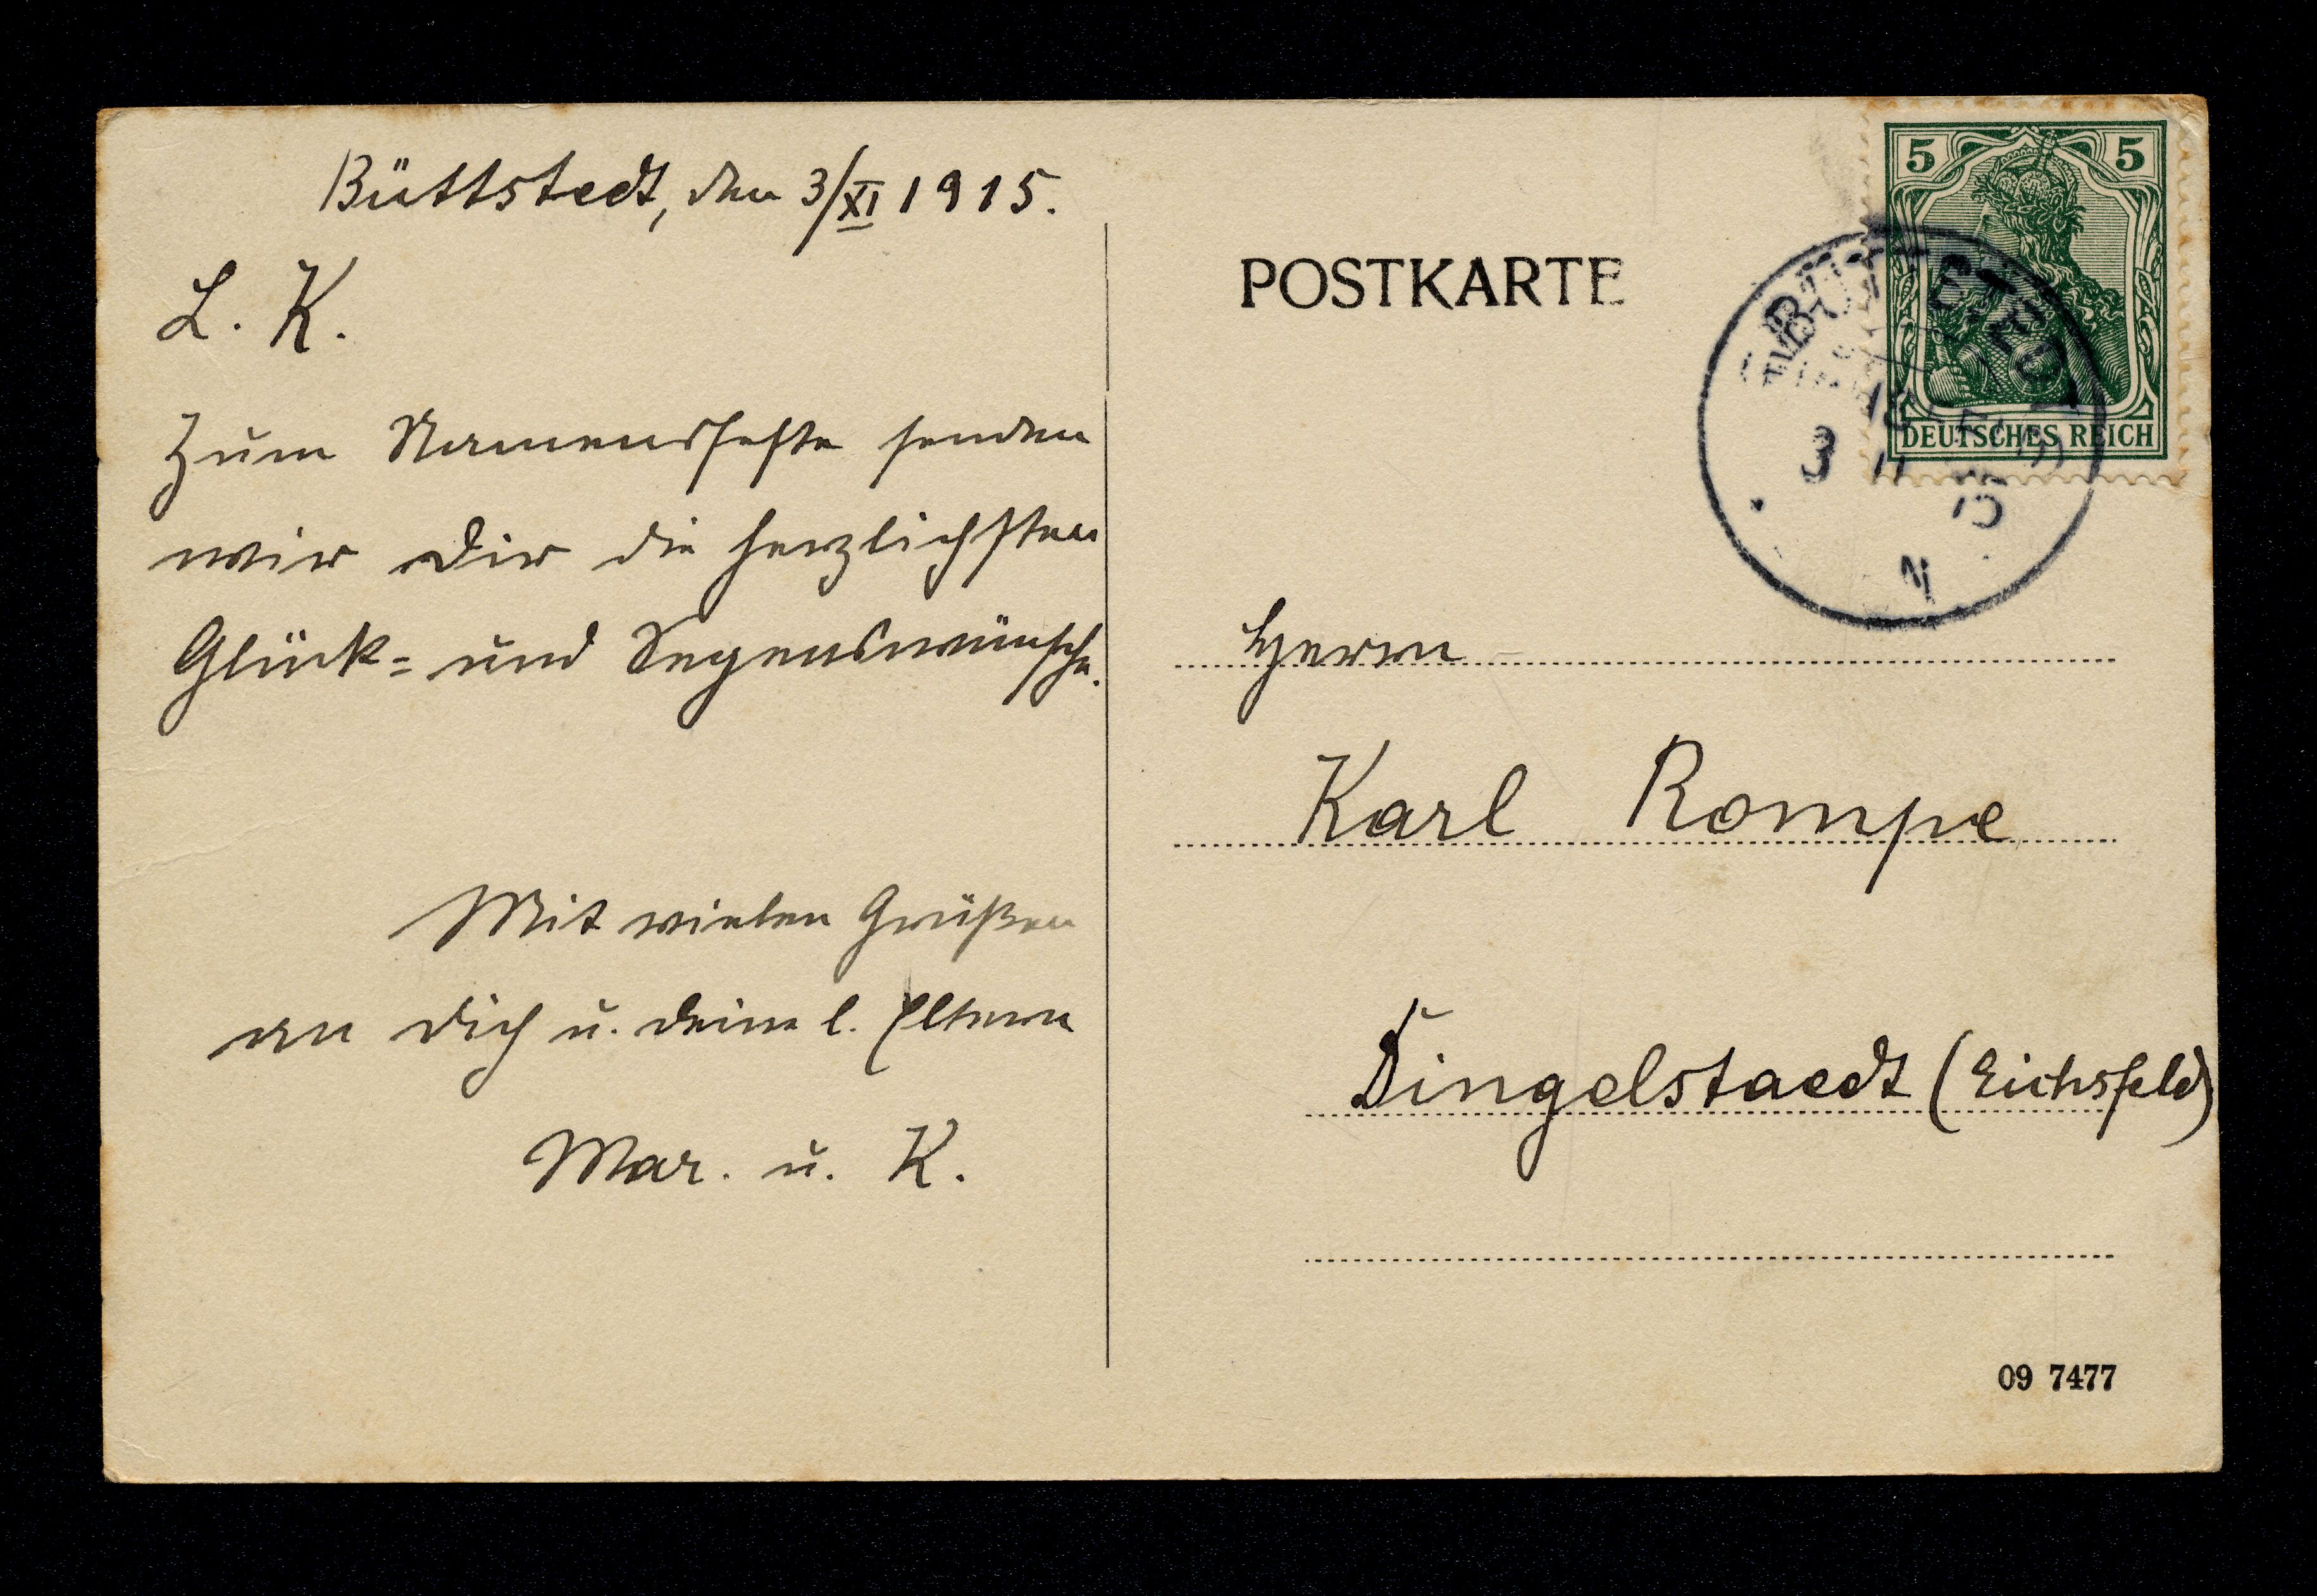 Büttstedt, den 3/XI 1915.
L. K.
Zum Namensfeste senden
wir Dir die herzlichsten
Glück- und Segenswünsche.
Mit vielen Grüßen
an Dich u. Deine l. Eltern
Mar. u. K.
POSTKARTE
5 5
DEUTSCHES REICH
3 11 15
Herrn
Karl Rompe
Dingelstaedt (Eichsfeld)
09 7477